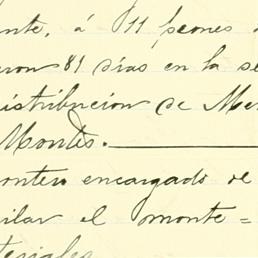 ante, á 11 peones
ron 81 días en la se
distribucion de Me
Montes.
ontero encargado de
ilar el monte =
teriales